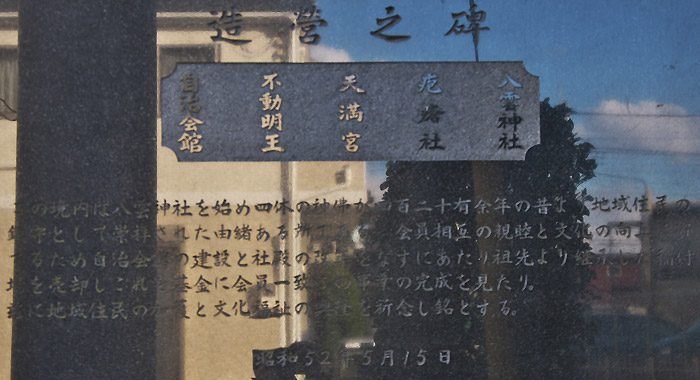 造営之碑
八雲神社
疱瘡社
天満宮
不動明王
自治会館
この境内は八雲神社を始め四体の神佛が 百二十有余年の昔より地域住民の
鎮守として崇拝された由緒ある所 会員相互の親睦と文化の向上
するため自治会 の建設と社殿の改 をなすにあたり祖先より継承した
を売却しこれを基金に会員一致 の完成を見たり。
に地域住民の と文化福祉の を祈念し銘とする。
昭和52年5月15日